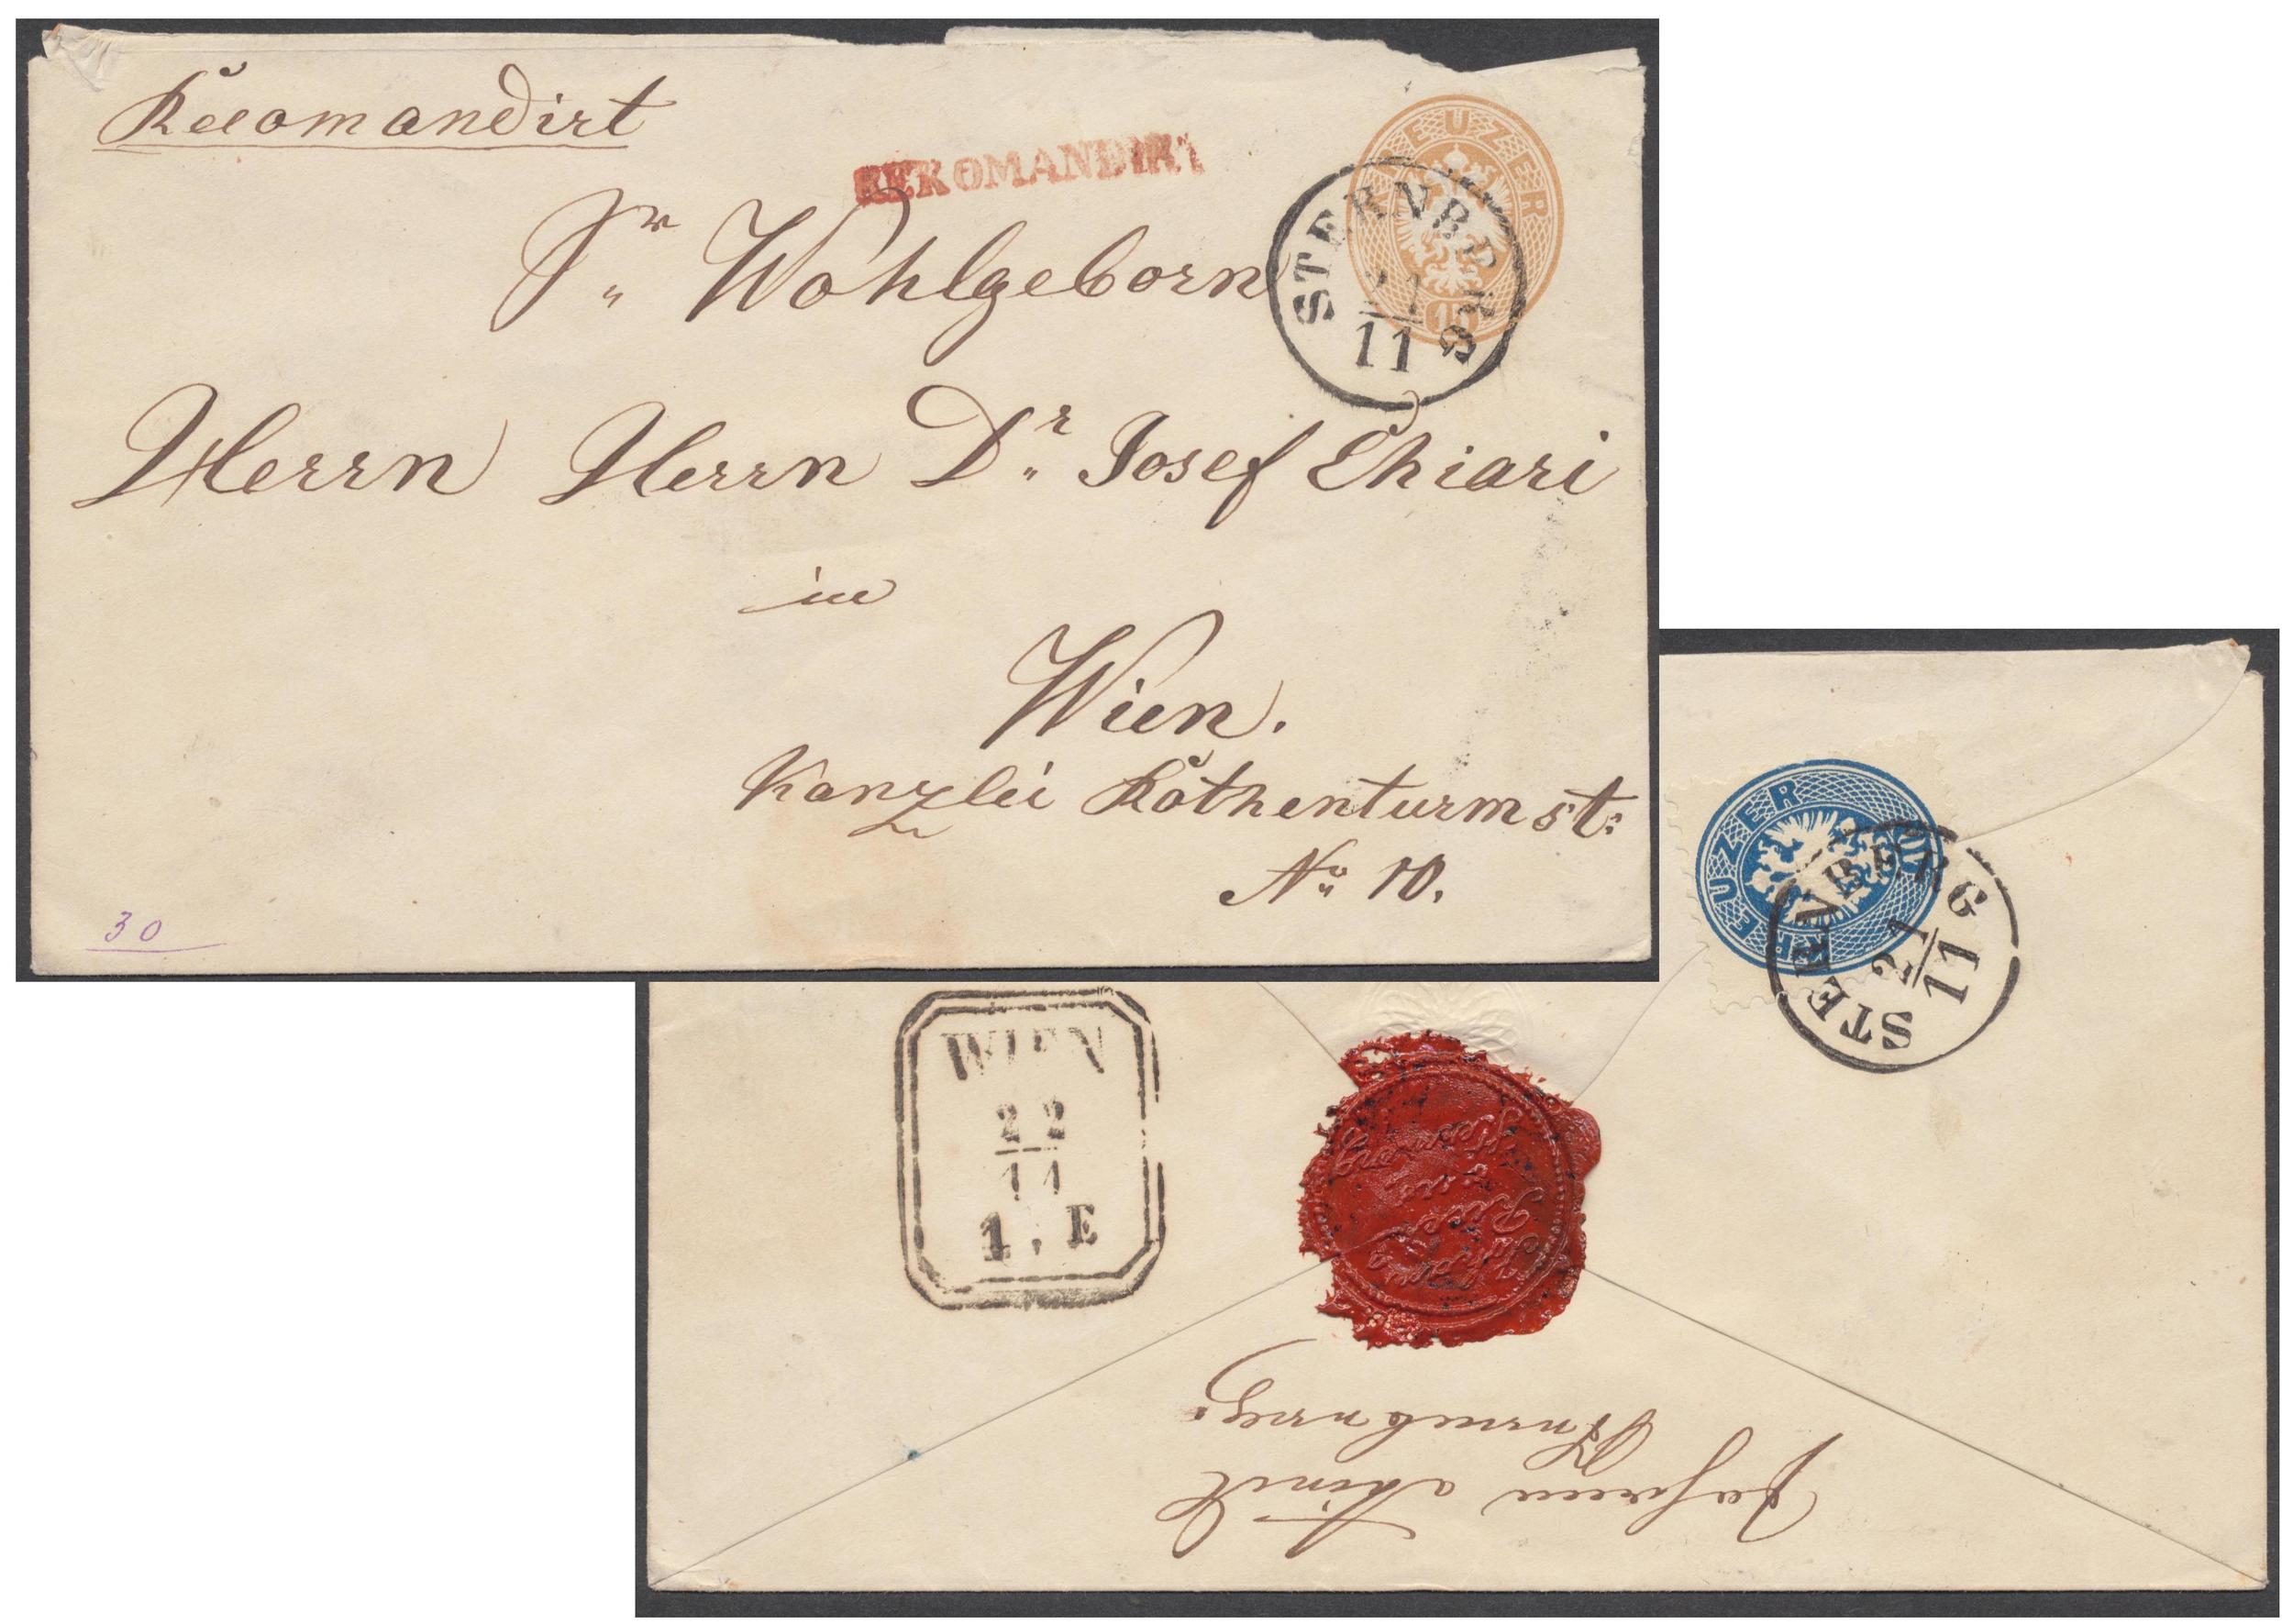 Recomandirt
REKOMANDIRT
KREUZER
15
STERNBERG
21
11
Sr Wohlgeborn
Herrn Herrn Dr Josef Chiari
in
Wien.
Kanzlei Rothenturmst:
No 10.
30
KREUZER
10
STERNBERG
21
11
WIEN
22
11
1. E
Johann
Sternberg.